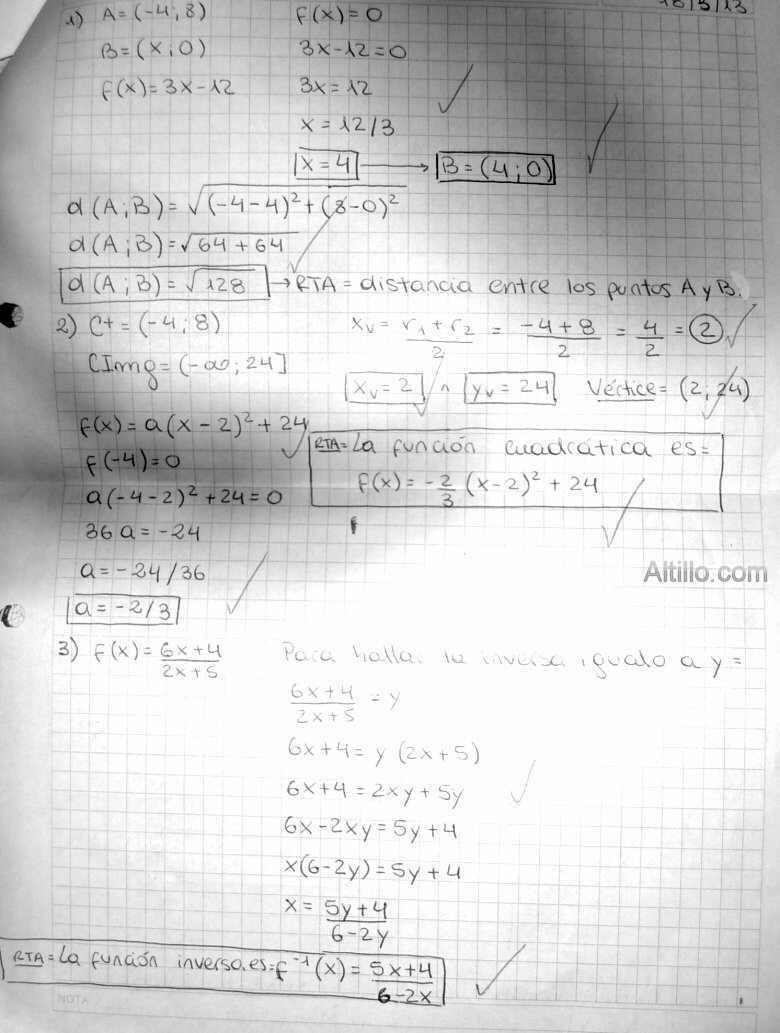 18/5/13
1) A=(-4;8) f(x)=0
B=(x;0) 3x-12=0
f(x)=3x-12 3x=12
x=12/3
x=4 → B=(4;0)
d(A;B)=√(-4-4)²+(8-0)²
d(A;B)=√64+64
d(A;B)=√128 → RTA= distancia entre los puntos A y B.
2) C+=(-4;8) xv= r1+r2/2 = -4+8/2 = 4/2 = 2
CImg=(-∞;24]
xv=2 ∧ yv=24 Vértice=(2;24)
f(x)=a(x-2)²+24
RTA=La función cuadrática es=
f(-4)=0
f(x)=-2/3 (x-2)²+24
a(-4-2)²+24=0
36a=-24
a=-24/36
Altillo.com
a=-2/3
3) f(x)=6x+4/2x+5 Para hallar la inversa igualo a y=
6x+4/2x+5 = y
6x+4= y (2x+5)
6x+4=2xy+5y
6x-2xy=5y+4
x(6-2y)=5y+4
x= 5y+4/6-2y
RTA=La función inversa es=f⁻¹(x)=5x+4/6-2x
NOTA